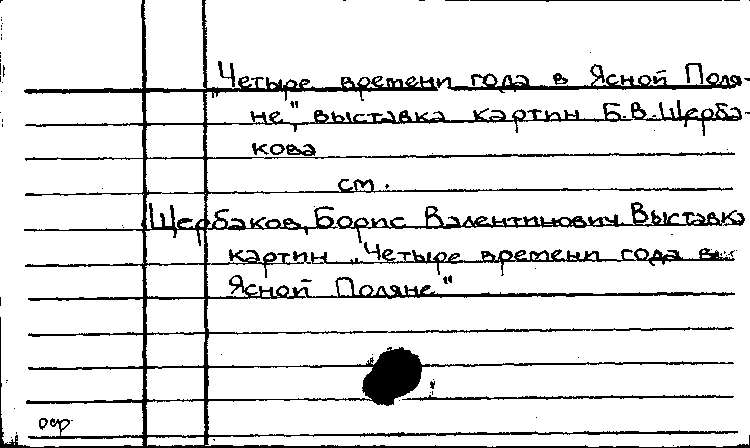 „Четыре времени года в Ясной Поля-
не", выставка картин Б.В. Щерба-
кова
см.
Щербаков, Борис Валентинович Выставка
картин „Четыре времени года в
Ясной Поляне"